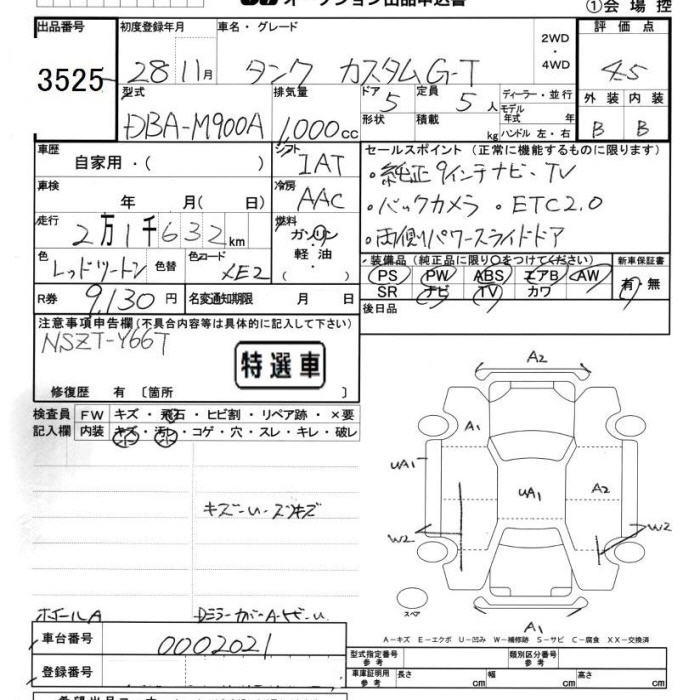 オークション出品申込書
①会場控
出品番号 初度登録年月 車名・グレード 2WD・4WD 評価点
3525 28 11月 タンク カスタムG-T 4.5
型式 排気量 ドア 定員 ディーラー・並行 外装 内装
DBA-M900A 1,000cc 5 5人 モデル年式 年 B B
形状 積載 kg ハンドル 左・右
車歴 シフト セールスポイント (正常に機能するものに限ります)
自家用・( ) IAT ・純正9インチナビ・TV
車検 冷房
年 月( 日) AAC ・バックカメラ ・ETC2.0
走行 燃料
2万1千632km ガソリン ・両側パワースライドドア
軽油
・( )
色 色替 色コード 装備品(純正品に限り○をつけてください) 新車保証書
レッドツートン XE2 PS PW ABS エアB AW 有・無
SR ナビ TV カワ
R券 9,130円 名変通知期限 月 日 後日品
注意事項申告欄(不具合内容等は具体的に記入して下さい)
NSZT-Y66T
特選車
修復歴 有 〔箇所 〕
検査員 FW キズ・飛石・ヒビ割・リペア跡・×要
記入欄 内装 キズ・汚レ・コゲ・穴・スレ・キレ・破レ
A2
A1
UA1
UA1
A2
W2
W2
A1
スペア
ホイールA
車台番号 0002021
A-キズ E-エクボ U-凹み W-補修跡 S-サビ C-腐食 XX-交換済
型式指定番号 参考 類別区分番号 参考
登録番号 車庫証明用 参考 長さ cm 幅 cm 高さ cm